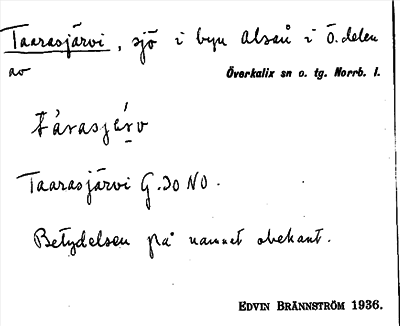 Taarasjärvi, sjö i byn Alsån i Ö. delen
av Överkalix sn o. tg. Norrb. l.
Taarasjärvi G.30 NO.
Betydelsen på namnet obekant.
EDVIN BRÄNNSTRÖM 1936.